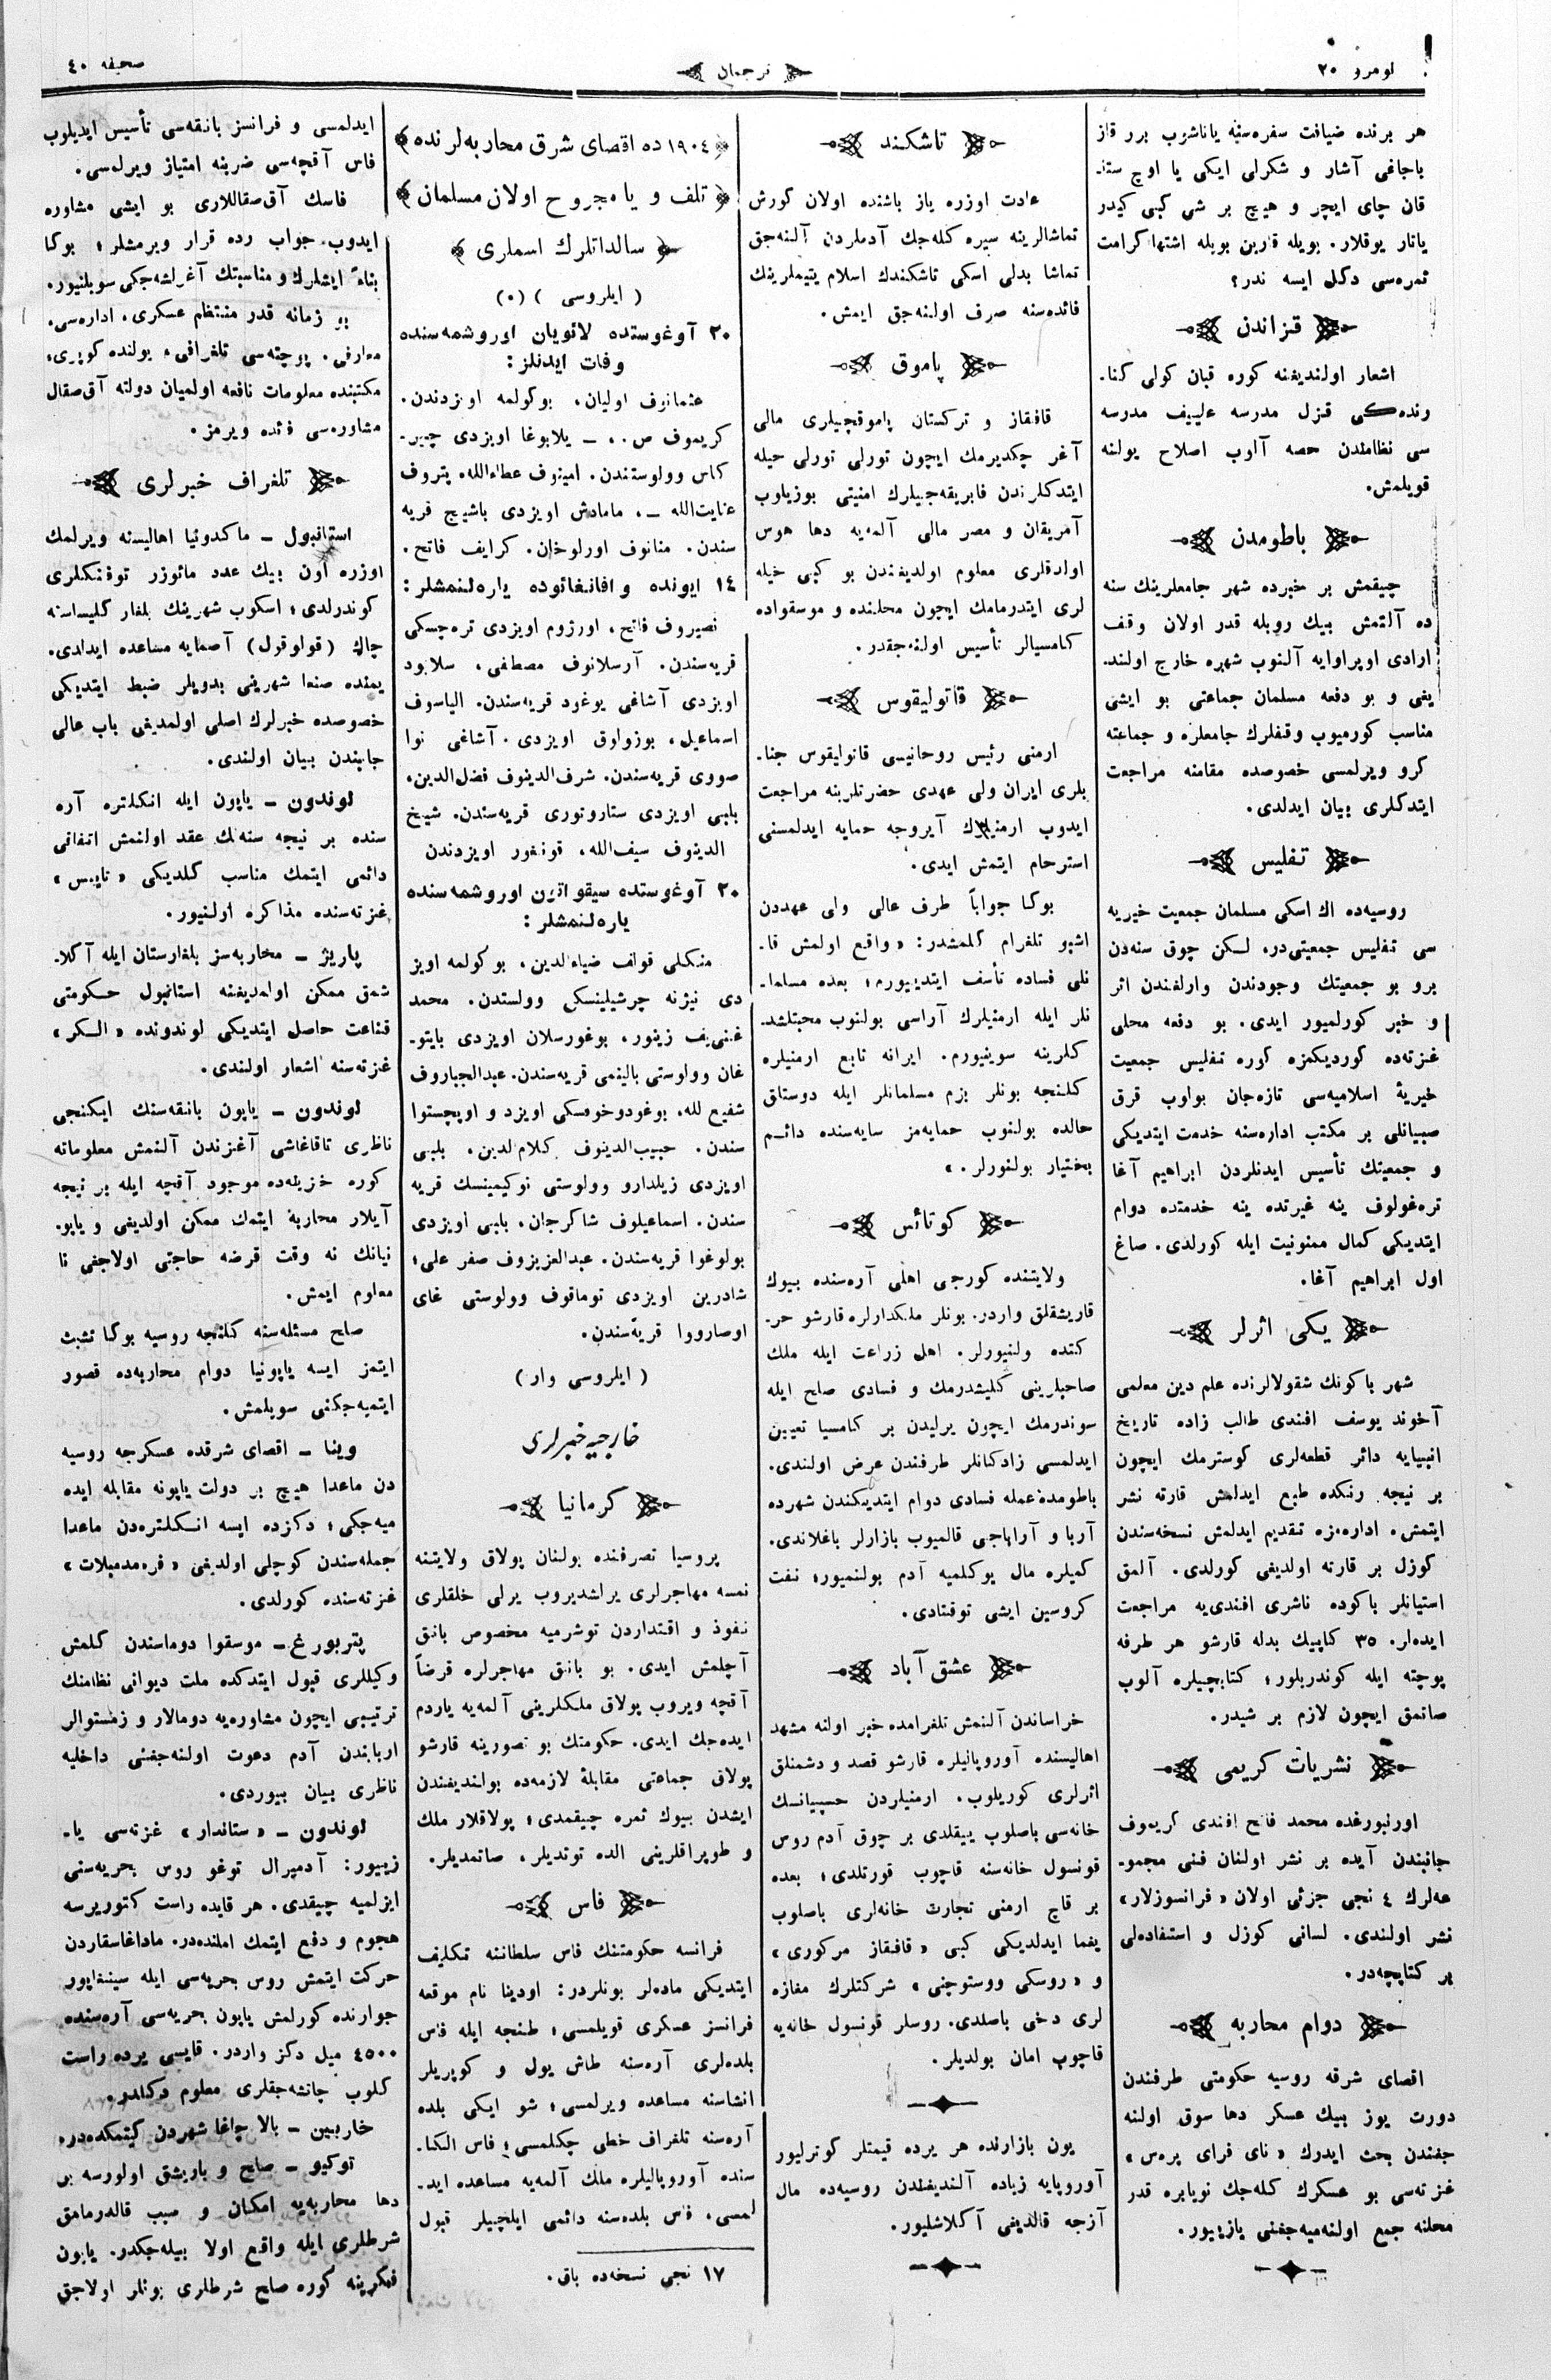 نومرو ٢٠
ترجمان
صحيفه ٤٠
هر برنده ضيافت سفره‌سنه ياناشوب برر قاز
باجاغى آشار و شكرلى ايكى يا اوچ ستا-
قان چاى ايچر و هيچ بر شى كبى كيدر
ياتار يوقلار. بويله قارين بويله اشتها كرامت
ثمره‌سى دكل ايسه ندر؟
قزاندن
اشعار اولنديغنه كوره قبان كولى كنا-
رنده‌كى قزل مدرسه عاليف مدرسه
سى نظامندن حصه آلوب اصلاح يولنه
قويلمش.
باطومدن
چيقمش بر خبرده شهر جامعلرينك سنه
ده آلتمش بيك روبله قدر اولان وقف
ارادى اوپراوايه آلنوب شهره خارج اولند-
يغى و بو دفعه مسلمان جماعتى بو ايشى
مناسب كورميوب وقفلرك جامعلره و جماعته
كرو ويرلمسى خصوصده مقامنه مراجعت
ايتدكلرى بيان ايدلدى.
تفليس
روسيه‌ده اك اسكى مسلمان جمعيت خيريه
سى تفليس جمعيتى‌در، لكن چوق سنه‌دن
برو بو جمعيتك وجودندن وارلغندن اثر
و خبر كورلميور ايدى. بو دفعه محلى
غزته‌ده كورديكمزه كوره تفليس جمعيت
خيريۀ اسلاميه‌سى تازه‌جان بولوب قرق
صبيانلى بر مكتب اداره‌سنه خدمت ايتديكى
و جمعيتك تأسيس ايدنلردن ابراهيم آغا
تره‌غولوف ينه غيرتده ينه خدمتده دوام
ايتديكى كمال ممنونيت ايله كورلدى. صاغ
اول ابراهيم آغا.
يكى اثرلر
شهر باكونك شقولالرنده علم دين معلمى
آخوند يوسف افندى طالب زاده تاريخ
انبيايه دائر قطعه‌لرى كوسترمك ايچون
بر نيجه رنكده طبع ايدلمش قارته نشر
ايتمش. اداره‌مزه تقديم ايدلمش نسخه‌سندن
كوزل بر قارته اولديغى كورلدى. آلمق
استيانلر باكوده ناشرى افندى‌يه مراجعت
ايده‌لر. ٣٥ كاپيك بدله قارشو هر طرفه
پوچته ايله كوندريلور؛ كتابچيلره آلوب
صاتمق ايچون لازم بر شيدر.
نشريات كريمى
اورنبورغده محمد فاتح افندى كريموف
جانبندن آيده بر نشر اولنان فنى مجمو-
عه‌لرك ٤ نجى جزئى اولان «فرانسوزلار»
نشر اولندى. لسانى كوزل و استفاده‌لى
بر كتابچه‌در.
دوام محاربه
اقصاى شرقه روسيه حكومتى طرفندن
دورت يوز بيك عسكر دها سوق اولنه
جغندن بحث ايدرك «ناى فراى پره‌س»
غزته‌سى بو عسكرك كله‌جك نويابره قدر
محلنه جمع اولنه‌ميه‌جغنى يازييور.
تاشكند
عادت اوزره ياز باشنده اولان كورش
تماشالرينه سيره كله‌جك آدملردن آلنه‌جق
تماشا بدلى اسكى تاشكندك اسلام يتيملرينك
فائده‌سنه صرف اولنه‌جق ايمش.
پاموق
قافقاز و تركستان پاموقچيلرى مالى
آغر چكديرمك ايچون تورلى تورلى حيله
ايتدكلرندن فابريقه‌جيلرك امنيتى بوزيلوب
آمريقان و مصر مالى آلمه‌يه دها هوس
اولدقلرى معلوم اولديغندن بو كبى حيله
لرى ايتدرمامك ايچون محلنده و موسقواده
كامسيالر تأسيس اولنه‌جقدر.
قاتوليقوس
ارمنى رئيس روحانيسى قاتوليقوس جنا-
بلرى ايران ولى عهدى حضرتلرينه مراجعت
ايدوب ارمنيلرك آيروجه حمايه ايدلمسنى
استرحام ايتمش ايدى.
بوكا جواباً طرف عالى ولى عهددن
اشبو تلغرام كلمشدر: «واقع اولمش قا-
نلى فساده تأسف ايتدييورم؛ بعده مسلما-
نلر ايله ارمنيلرك آراسى بولنوب محبتلشد-
كلرينه سوينيورم. ايرانه تابع ارمنيلره
كلنجه بونلر بزم مسلمانلر ايله دوستلق
حالده بولنوب حمايه‌مز سايه‌سنده دائم
بختيار بولنورلر.»
كوتائس
ولايتنده كورجى اهلى آره‌سنده بيوك
قاريشقلق واردر. بونلر ملكدارلره قارشو حر-
كتده ولنيورلر. اهل زراعت ايله ملك
صاحبلرينى كليشدرمك و فسادى صلح ايله
سوندرمك ايچون يرليدن بر كامسيا تعيين
ايدلمسى زادكانلر طرفندن عرض اولندى.
باطومده‌عمله فسادى دوام ايتديكندن شهرده
آربا و آراباجى قالميوب بازارلر باغلاندى.
كميلره مال يوكلميه آدم بولنميور؛ نفت
كروسين ايشى توقتادى.
عشق آباد
خراساندن آلنمش تلغرامده خبر اولنه مشهد
اهاليسنده آوروپاليلره قارشو قصد و دشمنلق
اثرلرى كوريلوب. ارمنيلردن حسپيانسك
خانه‌سى باصلوب ييقلدى بر چوق آدم روس
قونسول خانه‌سنه قاچوب قورتلدى؛ بعده
بر قاچ ارمنى تجارت خانه‌لرى باصلوب
يغما ايدلديكى كبى «قافقاز مركورى»
و «روسكى ووستوچنى» شركتلرك مغازه
لرى دخى باصلدى. روسلر قونسول خانه‌يه
قاچوپ امان بولديلر.
يون بازارنده هر يرده قيمتلر كوترليور
آوروپايه زياده آلنديغندن روسيه‌ده مال
آزجه قالديغى آكلاشليور.
١٩٠٤ ده اقصاى شرق محاربه‌لرنده
تلف و يا مجروح اولان مسلمان
سالداتلرك اسملرى
(ايلروسى) (٠)
٢٠ آوغوستده لائويان اوروشمه‌سنده
وفات ايدنلر:
عثمانوف اوليان، بوكولمه اويزدندن.
كريموف ص.، — يلابوغا اويزدى چير-
كاس وولوستندن. امينوف عطاءالله، پتروف
عنايت‌الله —، مامادش اويزدى باشيج قريه
سندن. منانوف اورلوخان. كرايف فاتح.
١٤ ايونده و افانغائوده ياره‌لنمشلر:
نصيروف فاتح، اورژوم اويزدى تره‌چسكى
قريه‌سندن. آرسلانوف مصطفى، سلابود
اويزدى آشاغى يوغود قريه‌سندن. الياسوف
اسماعيل، بوزولوق اويزدى. آشاغى نوا
صووى قريه‌سندن. شرف‌الدينوف فضل‌الدين،
بلبى اويزدى ستاروتورى قريه‌سندن. شيخ
الدينوف سيف‌الله، قونغور اويزدندن
٢٠ آوغوستده سيقوانتين اوروشمه‌سنده
ياره‌لنمشلر:
منكلى قولف ضياءالدين، بوكولمه اويز
دى نيژنه چرشيلينسكى وولستدن. محمد
غنى‌يف زينور، بوغورسلان اويزدى بايتو-
غان وولوستى بالينمى قريه‌سندن. عبدالجباروف
شفيع لله، بوغودوخوفسكى اويزد و اويچستوا
سندن. حبيب‌الدينوف كلام‌الدين. بلبى
اويزدى زيلدارو وولوستى نوكيمينسك قريه
سندن. اسماعيلوف شاكرجان، بلبى اويزدى
بولوغوا قريه‌سندن. عبدالعزيزوف صفر على؛
شادرين اويزدى توماقوف وولوستى غاى
اوصارووا قريه‌سندن.
(ايلروسى وار)
خارجيه خبرلرى
كرمانيا
پروسيا تصرفنده بولنان پولاق ولايتنه
نمسه مهاجرلرى يرلشديروب يرلى خلقلرى
نفوذ و اقتداردن توشرميه مخصوص بانق
آچلمش ايدى. بو بانق مهاجرلره قرضاً
آقچه ويروب پولاق ملكلرينى آلمه‌يه ياردم
ايده‌جك ايدى. حكومتك بو تصورينه قارشو
پولاق جماعتى مقابلۀ لازمه‌ده بولنديغندن
ايشدن بيوك ثمره چيقمدى؛ پولاقلار ملك
و طوپراقلرينى الده توتديلر، صاتمديلر.
فاس
فرانسه حكومتنك فاس سلطاننه تكليف
ايتديكى ماده‌لر بونلردر: اودينا نام موقعه
فرانسز عسكرى قويلمسى؛ طنجه ايله فاس
بلده‌لرى آره‌سنه طاش يول و كوپريلر
انشاسنه مساعده ويرلمسى؛ شو ايكى بلده
آره‌سنه تلغراف خطى چكلمسى؛ فاس الكا-
سنده آوروپاليلره ملك آلمه‌يه مساعده ايد-
لمسى، فاس بلده‌سنه دائمى ايلچييلر قبول
١٧ نجى نسخه‌ده باق.
ايدلمسى و فرانسز بانقه‌سى تأسيس ايديلوب
فاس آقچه‌سى ضربنه امتياز ويرلمسى.
فاسك آق‌صقاللارى بو ايشى مشاوره
ايدوب، جواب رده قرار ويرمشلر؛ بوكا
بناءً ايشلرك و مناسبتك آغرلشه‌جكى سويلنيور.
بو زمانه قدر منتظم عسكرى، اداره‌سى،
معارفى، پوچته‌سى تلغرافى، يولنده كوپرى،
مكتبنده معلومات نافعه اولميان دولته آق‌صقال
مشاوره‌سى فائده ويرمز.
تلغراف خبرلرى
استانبول — ماكدونيا اهاليسنه ويرلمك
اوزره اون بيك عدد مائوزر توفنكلرى
كوندرلدى؛ اسكوب شهرينك بلغار كليساسنه
چاك (قولوقول) آصمايه مساعده ايدلدى.
يمنده صنعا شهرينى بدويلر ضبط ايتديكى
خصوصده خبرلرك اصلى اولمديغى باب عالى
جانبندن بيان اولندى.
لوندون — ياپون ايله انكلتره آره
سنده بر نيجه سنه‌لك عقد اولنمش اتفاقى
دائمى ايتمك مناسب كلديكى «تايمس»
غزته‌سنده مذاكره اولنيور.
پاريژ — محاربه‌سز بلغارستان ايله آكلا-
شمق ممكن اولمديغنه استانبول حكومتى
قناعت حاصل ايتديكى لوندونده «الكر»
غزته‌سنه اشعار اولندى.
لوندون — ياپون بانقه‌سنك ايكنجى
ناظرى تاقاغاشى آغزندن آلنمش معلوماته
كوره خزينه‌ده موجود آقچه ايله بر نيجه
آيلار محاربه ايتمك ممكن اولديغى و ياپو-
نيانك نه وقت قرضه حاجتى اولاجغى نا
معلوم ايمش.
صلح مسئله‌سنه كلنجه روسيه بوكا تشبث
ايتمز ايسه ياپونيا دوام محاربه‌ده قصور
ايتميه‌جكنى سويلمش.
وينا — اقصاى شرقده عسكرجه روسيه
دن ماعدا هيچ بر دولت ياپونه مقابله ايده
ميه‌جكى؛ دكزده ايسه انكلتره‌دن ماعدا
جمله‌سندن كوچلى اولديغى «فره‌مدمبلات»
غزته‌سنده كورلدى.
پتربورغ — موسقوا دوماسندن كلمش
وكيللرى قبول ايتدكده ملت ديوانى نظامنك
ترتيبى ايچون مشاوره‌يه دومالار و زمستوالر
اربابندن آدم دعوت اولنه‌جغنى داخليه
ناظرى بيان بيوردى.
لوندون — «ستاندار» غزته‌سى يا-
زييور: آدميرال توغو روس بحريه‌سنى
ايزلميه چيقدى. هر قايده راست كتوريرسه
هجوم و دفع ايتمك املنده‌در. ماداغاسقاردن
حركت ايتمش روس بحريه‌سى ايله سينغاپور
جوارنده كورلمش ياپون بحريه‌سى آره‌سنده
٤٥٠٠ ميل دكز واردر. قايسى يرده راست
كلوب چاتشه‌جقلرى معلوم دكلدر.
خاربين — بالا چاغا شهردن كيتمكده‌در.
توكيو — صلح و باريشق اولورسه بر
دها محاربه‌يه امكان و سبب قالدرمامق
شرطلرى ايله واقع اولا بيله‌جكدر. ياپون
فكرينه كوره صلح شرطلرى بونلر اولاجق